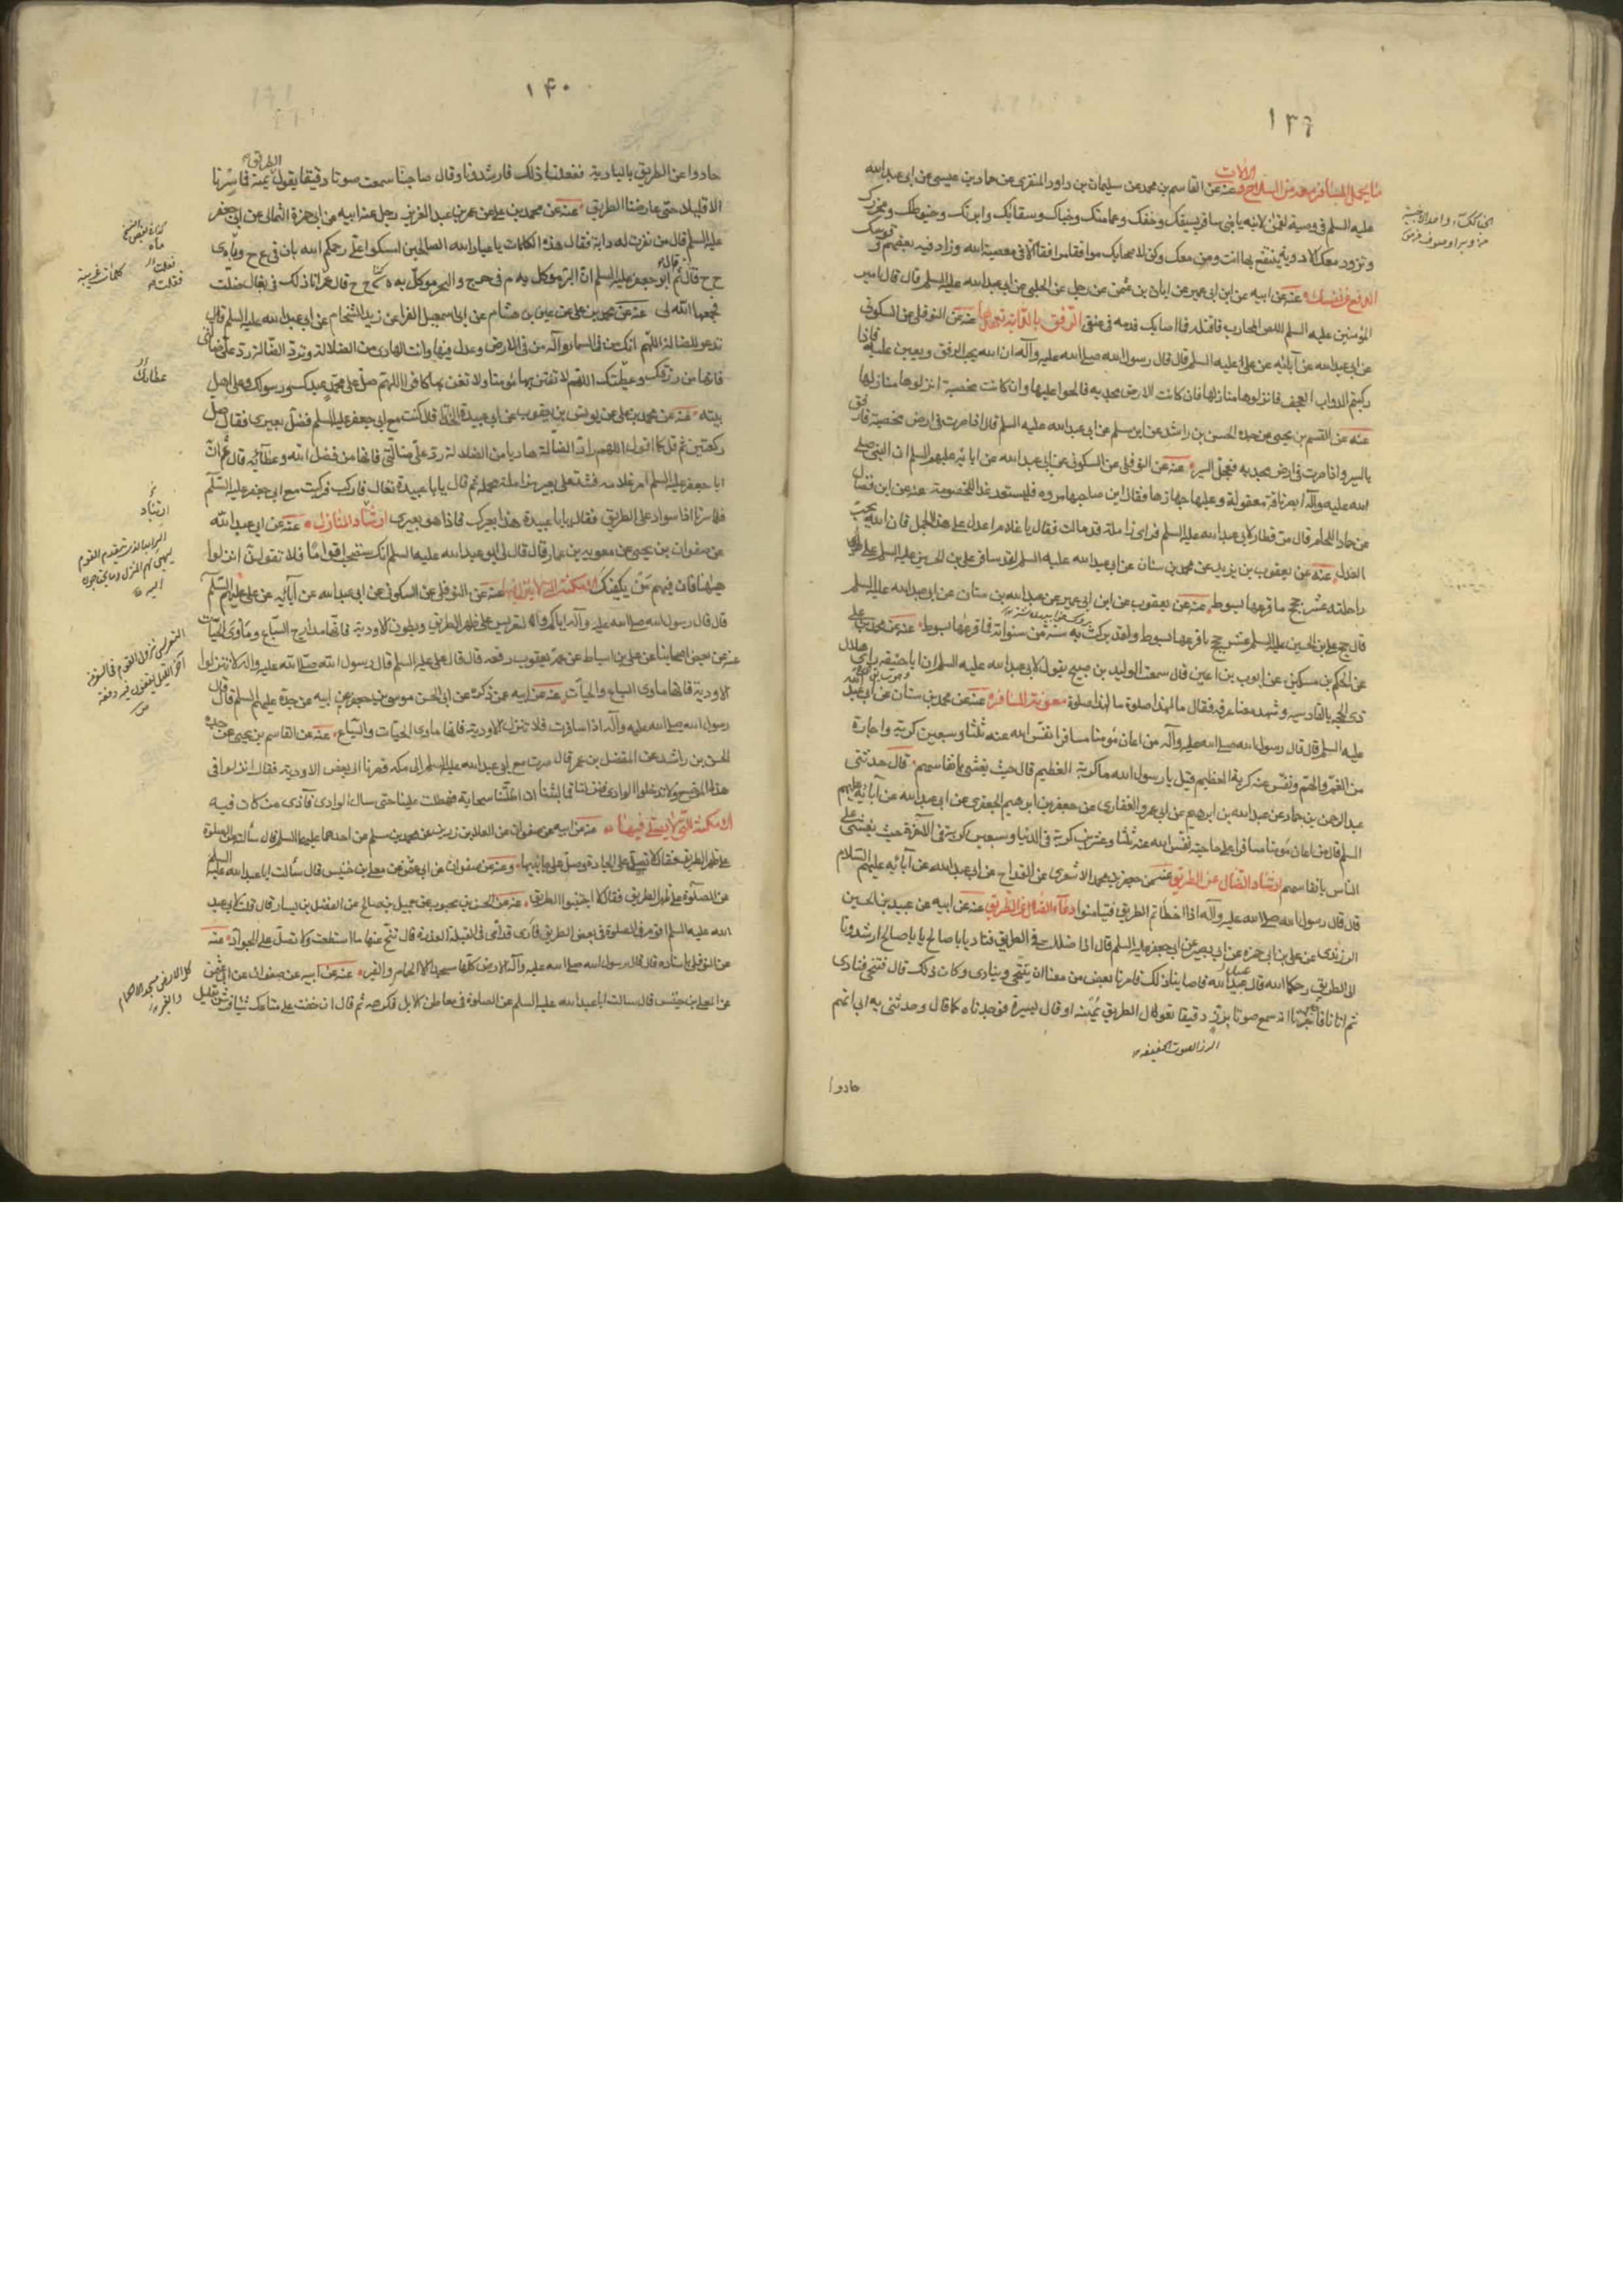 ١٣٩
ما يحمل المسافر معه من السلاح و الآلات عنه عن القاسم بن محمد عن سليمان بن داود المنقرى عن حماد بن عيسى عن ابى عبدالله
عليه السلم فى وصية لقمن لابنه يا بنى سافر بسيفك وخفك وعمامتك وخباك وسقائك وابرتك وخيوطك ومخرزك
وتزود معك الادوية ينتفع بها انت ومن معك وكن لاصحابك موافقا مرافقا الا فى معصية الله وزاد فيه بعضهم قوسك
الدفع عن نفسك عنه عن ابيه عن ابن ابى عمير عن ابان بن عثمن عن رجل عن الحلبى عن ابى عبدالله عليه السلم قال قال امير
المؤمنين عليه السلم اللص المحارب فاقتله فما اصابك فدمه فى عنقى الرفق بالدابة وتعهدها عنه عن النوفلى عن السكونى
عن ابى عبدالله عن آبائه عن على عليه السلم قال قال رسول الله صلى الله عليه وآله ان الله يحب الرفق ويعين عليه فاذا
ركبتم الدواب العجف فانزلوها منازلها فان كانت الارض مجدبة فالحوا عليها وان كانت مخصبة انزلوها منازلها
عنه عن القسم بن يحيى عن جده الحسن بن راشد عن ابن مسلم عن ابى عبدالله عليه السلم قال اذا صرت فى ارض مخصبة فارفق
بالسير واذا صرت فى ارض مجدبة فعجل السير عنه عن النوفلى عن السكونى عن ابى عبدالله عن ابائه عليهم السلم ان النبى صلى
الله عليه وآله ابصر ناقة معقولة وعليها جهازها فقال اين صاحبها مروه فليستعد غدا للخصومة عنه عن ابن فضال
عن حماد اللحام قال مر قطار لابى عبدالله عليه السلم فراى زاملة قد مالت فقال يا غلام اعدل على هذا الجمل فان الله يحب
العدل عنه عن يعقوب بن يزيد عن محمد بن سنان عن ابى عبدالله عليه السلم لقد سافر على بن الحسين عليه السلم على
راحلته عشر حجج ما قرعها بسوط عنه عن يعقوب عن ابن ابى عمير عن عبدالله بن سنان عن ابى عبدالله عليه السلم
قال حج على بن الحسين عليه السلم عشر حجج ما قرعها بسوط ولقد بركت به سنة من سنواته فما قرعها بسوط عنه عن محمد بن على
عن الحكم بن مسكين عن ايوب بن اعين قال سمعت الوليد بن صبيح يقول لابى عبدالله عليه السلم ان ابا حنيفة راى هلال
ذى الحجة بالقادسية وشهد معنا عرفة فقال ما لهذا صلوة ما لهذا صلوة معونة المسافر عنه عن محمد بن سنان عن ابى عبد الله
عليه السلم قال قال رسول الله صلى الله عليه وآله من اعان مؤمنا مسافرا نفس الله عنه ثلثا وسبعين كربة واجاره
من الغم والهم ونفس عنه كربة العظيم قيل يا رسول الله ما كربة العظيم قال حيث يغشى بانفاسهم قال حدثنى
عبدالرحمن بن حماد عن عبدالله بن ابرهيم عن ابى عمرو الغفارى عن جعفر بن ابرهيم الجعفرى عن ابى عبدالله عن آبائه عليهم
السلم قال من اعان مؤمنا مسافرا على حاجته نفس الله عنه ثلثا وعشرين كربة فى الدنيا وسبعين كربة فى الآخرة حيث يغشى على
الناس بانفاسهم ارشاد الضال عن الطريق عنه عن جعفر بن محمد الاشعرى عن القداح عن ابى عبدالله عن آبائه عليهم السلام
قال قال رسول الله صلى الله عليه وآله اذا اخطأتم الطريق فتيامنوا دعاء الضال عن الطريق عنه عن ابيه عن عبيد بن الحسين
الزرندى عن على بن ابى حمزه عن ابى بصير عن ابى جعفر عليه السلم قال اذا ضللت فى الطريق فناد يا با صالح يا با صالح ارشدونا
الى الطريق رحمكم الله قال عبيد الله فاصابنا ذلك فامرنا بعض من معنا ان يتنحى وينادى وكان ذلك قال فتنحى فنادى
ثم اتانا فاخبرنا انه سمع صوتا برز دقيقا يقول الطريق يمنة او قال يسيرة فوجدناه كما قال وحدثنى به ابى انهم
الرز الصوت الخفيف
حادوا
١٤٠
حادوا عن الطريق بالبادية ففعلنا ذلك فارشدونا وقال صاحبنا سمعت صوتا دقيقا يقول الطريق يمنة فما سرنا
الا قليلا حتى عارضنا الطريق عنه عن محمد بن على عن عمر بن عبد العزيز عن رجل عن ابيه عن ابى حمزة الثمالى عن ابى جعفر
عليه السلم قال من نفرت له دابة فقال هذه الكلمات يا عباد الله الصالحين امسكوا على رحمكم الله بان فى ع ح وياوى
ح ح قال ثم قال ابو جعفر عليه السلم ان البر موكل به م فى حرج والبحر موكل به ه ح ح قال عمر انا ذلك فى بغال ضلت
فجمعها الله لى عنه عن محمد بن على عن عبيس بن هشام عن ابى اسمعيل الفرا عن زيد الشحام عن ابى عبدالله عليه السلم قال
تدعو للضالة اللهم انك من فى السماء وآله من فى الارض وعدل فيها وانت الهادى من الضلالة وترد الضالة رد على ضالتى
فانها من رزقك وعطيتك اللهم لا تفتن بها مؤمنا ولا تغن بها كافرا اللهم صل على محمد عبدك ورسولك وعلى اهل
بيته عنه عن محمد بن على عن يونس بن يعقوب عن ابى عبيدة الحذا قال كنت مع ابى جعفر عليه السلم فضل بعيرى فقال صل
ركعتين ثم قل كما اقول اللهم راد الضالة هاديا من الضلالة رد على ضالتى فانها من فضل الله وعطائه قال ثم ان
ابا جعفر عليه السلم امر غلامه فشد على بعير من ابله محمله ثم قال يا با عبيدة تعال فاركب فركبت مع ابى جعفر عليه السلم
فلما سرنا اذا سواد على الطريق فقال يا با عبيدة هذا بعيرك فاذا هو بعيرى ارتياد المنازل عنه عن ابى عبدالله
عن صفوان بن يحيى عن معوية بن عمار قال قال لى ابو عبدالله عليه السلم انك ستصحب اقواما فلا تقولن انزلوا
هيهنا فان فيهم من يكفيك الامكنة التى لا ينزل فيها عنه عن النوفلى عن السكونى عن ابى عبدالله عن آبائه عن على عليهم السلم
قال قال رسول الله صلى الله عليه وآله اياكم والتعريس على ظهر الطريق وبطون الاودية فانها مدارج السباع وماوى الحيات
عنه عن بعض اصحابنا عن على بن اسباط عن عمه يعقوب رفعه قال قال على عليه السلم قال رسول الله صلى الله عليه وآله لا تنزلوا
الاودية فانها ماوى السباع والحيات عنه عن ابيه عمن ذكره عن ابى الحسن موسى بن جعفر عن ابيه عن جده عليهم السلم قال قال
رسول الله صلى الله عليه وآله اذا سافرت فلا تنزل الاودية فانها ماوى الحيات والسباع عنه عن القاسم بن يحيى عن جده
الحسن بن راشد عن المفضل بن عمر قال صرت مع ابى عبدالله عليه السلم الى مكه فصرنا الى بعض الاودية فقال انزلوا فى
هذا الموضع ولا تدخلوا الوادى فنزلنا فما لبثنا ان اظلتنا سحابة فهطلت علينا حتى سال الوادى فآذى من كان فيه
الامكنة التى لا يصلى فيها عنه عن ابيه عن صفوان عن العلا بن رزين عن محمد بن مسلم عن احدهما عليهما السلم قال سألت عن الصلوة
على ظهر الطريق فقال لا تصل على الجادة وصل على جانبيها وعنه عن صفوان عن ابى عثمن عن معلى بن خنيس قال سألت ابا عبدالله عليه السلم
عن الصلوة على ظهر الطريق فقال لا اجتنبوا الطريق عنه عن الحسن بن محبوب عن جميل بن صالح عن الفضل بن يسار قال قلت لابى عبد
الله عليه السلم اقوم فى الصلوة فى بعض الطريق فارى قدامى فى القبلة العذرة قال تنح عنها ما استطعت ولا تصل على الجواد عنه
عن النوفلى باسناده قال قال رسول الله صلى الله عليه وآله الارض كلها مسجد الا الحمام والقبر عنه عن ابيه عن صفوان عن ابى عثمن
عن المعلى بن خنيس قال سالت ابا عبدالله عليه السلم عن الصلوة فى معاطن الابل فكرهه ثم قال ان خفت على متاعك شيئا فرش بقليل
كلمات غريبة
عطائك
ارتياد
التعريس نزول القوم فى السفر
آخر الليل يقعون فيه وقعة
كل الارض مسجد الا الحمام
والقبر